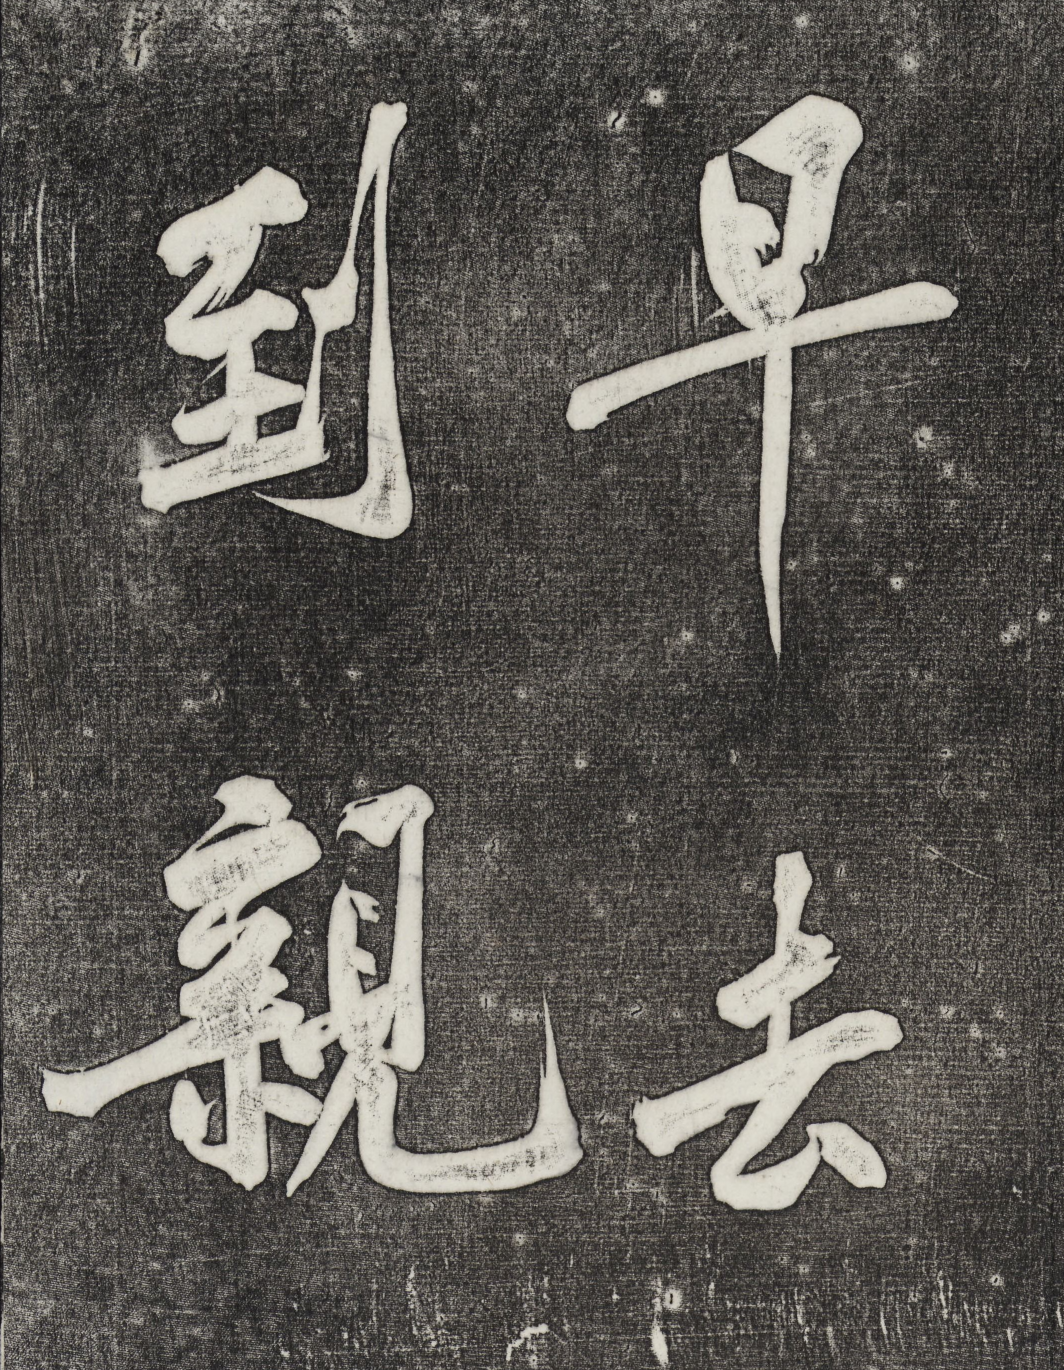 早去
到親